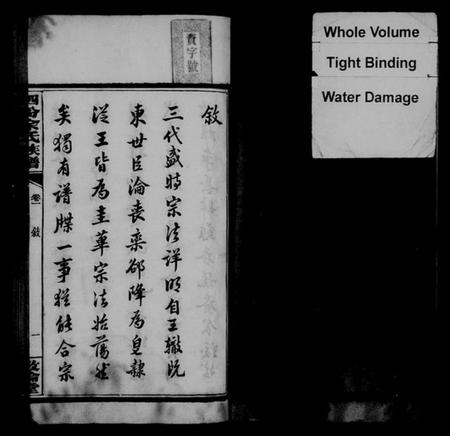 Whole Volume
Tight Binding
Water Damage
資字號
敘
三代盛時宗法詳明自王轍既
東世臣淪喪欒郤降為皁隸
從王皆為圭蓽宗法始蕩然
矣獨有譜牒一事猶能合宗
氏族譜
卷一
敘
一